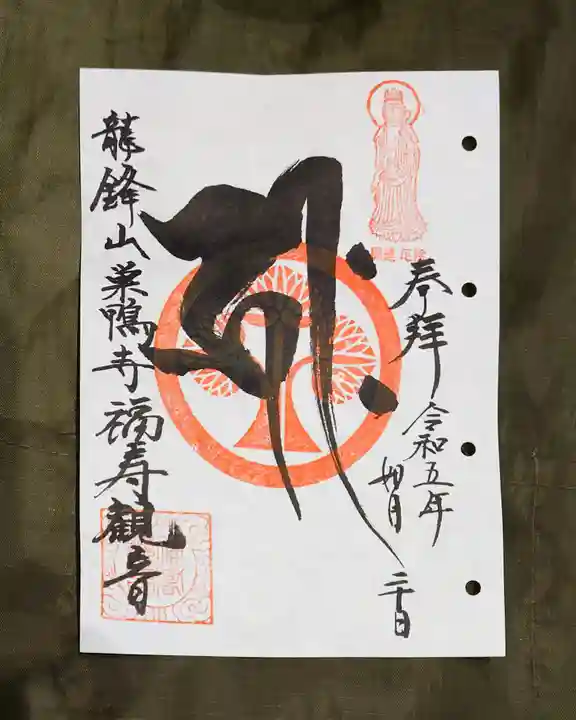 奉拝
令和五年
如月
二十日
龍鋒山巣鴨寺福寿観音